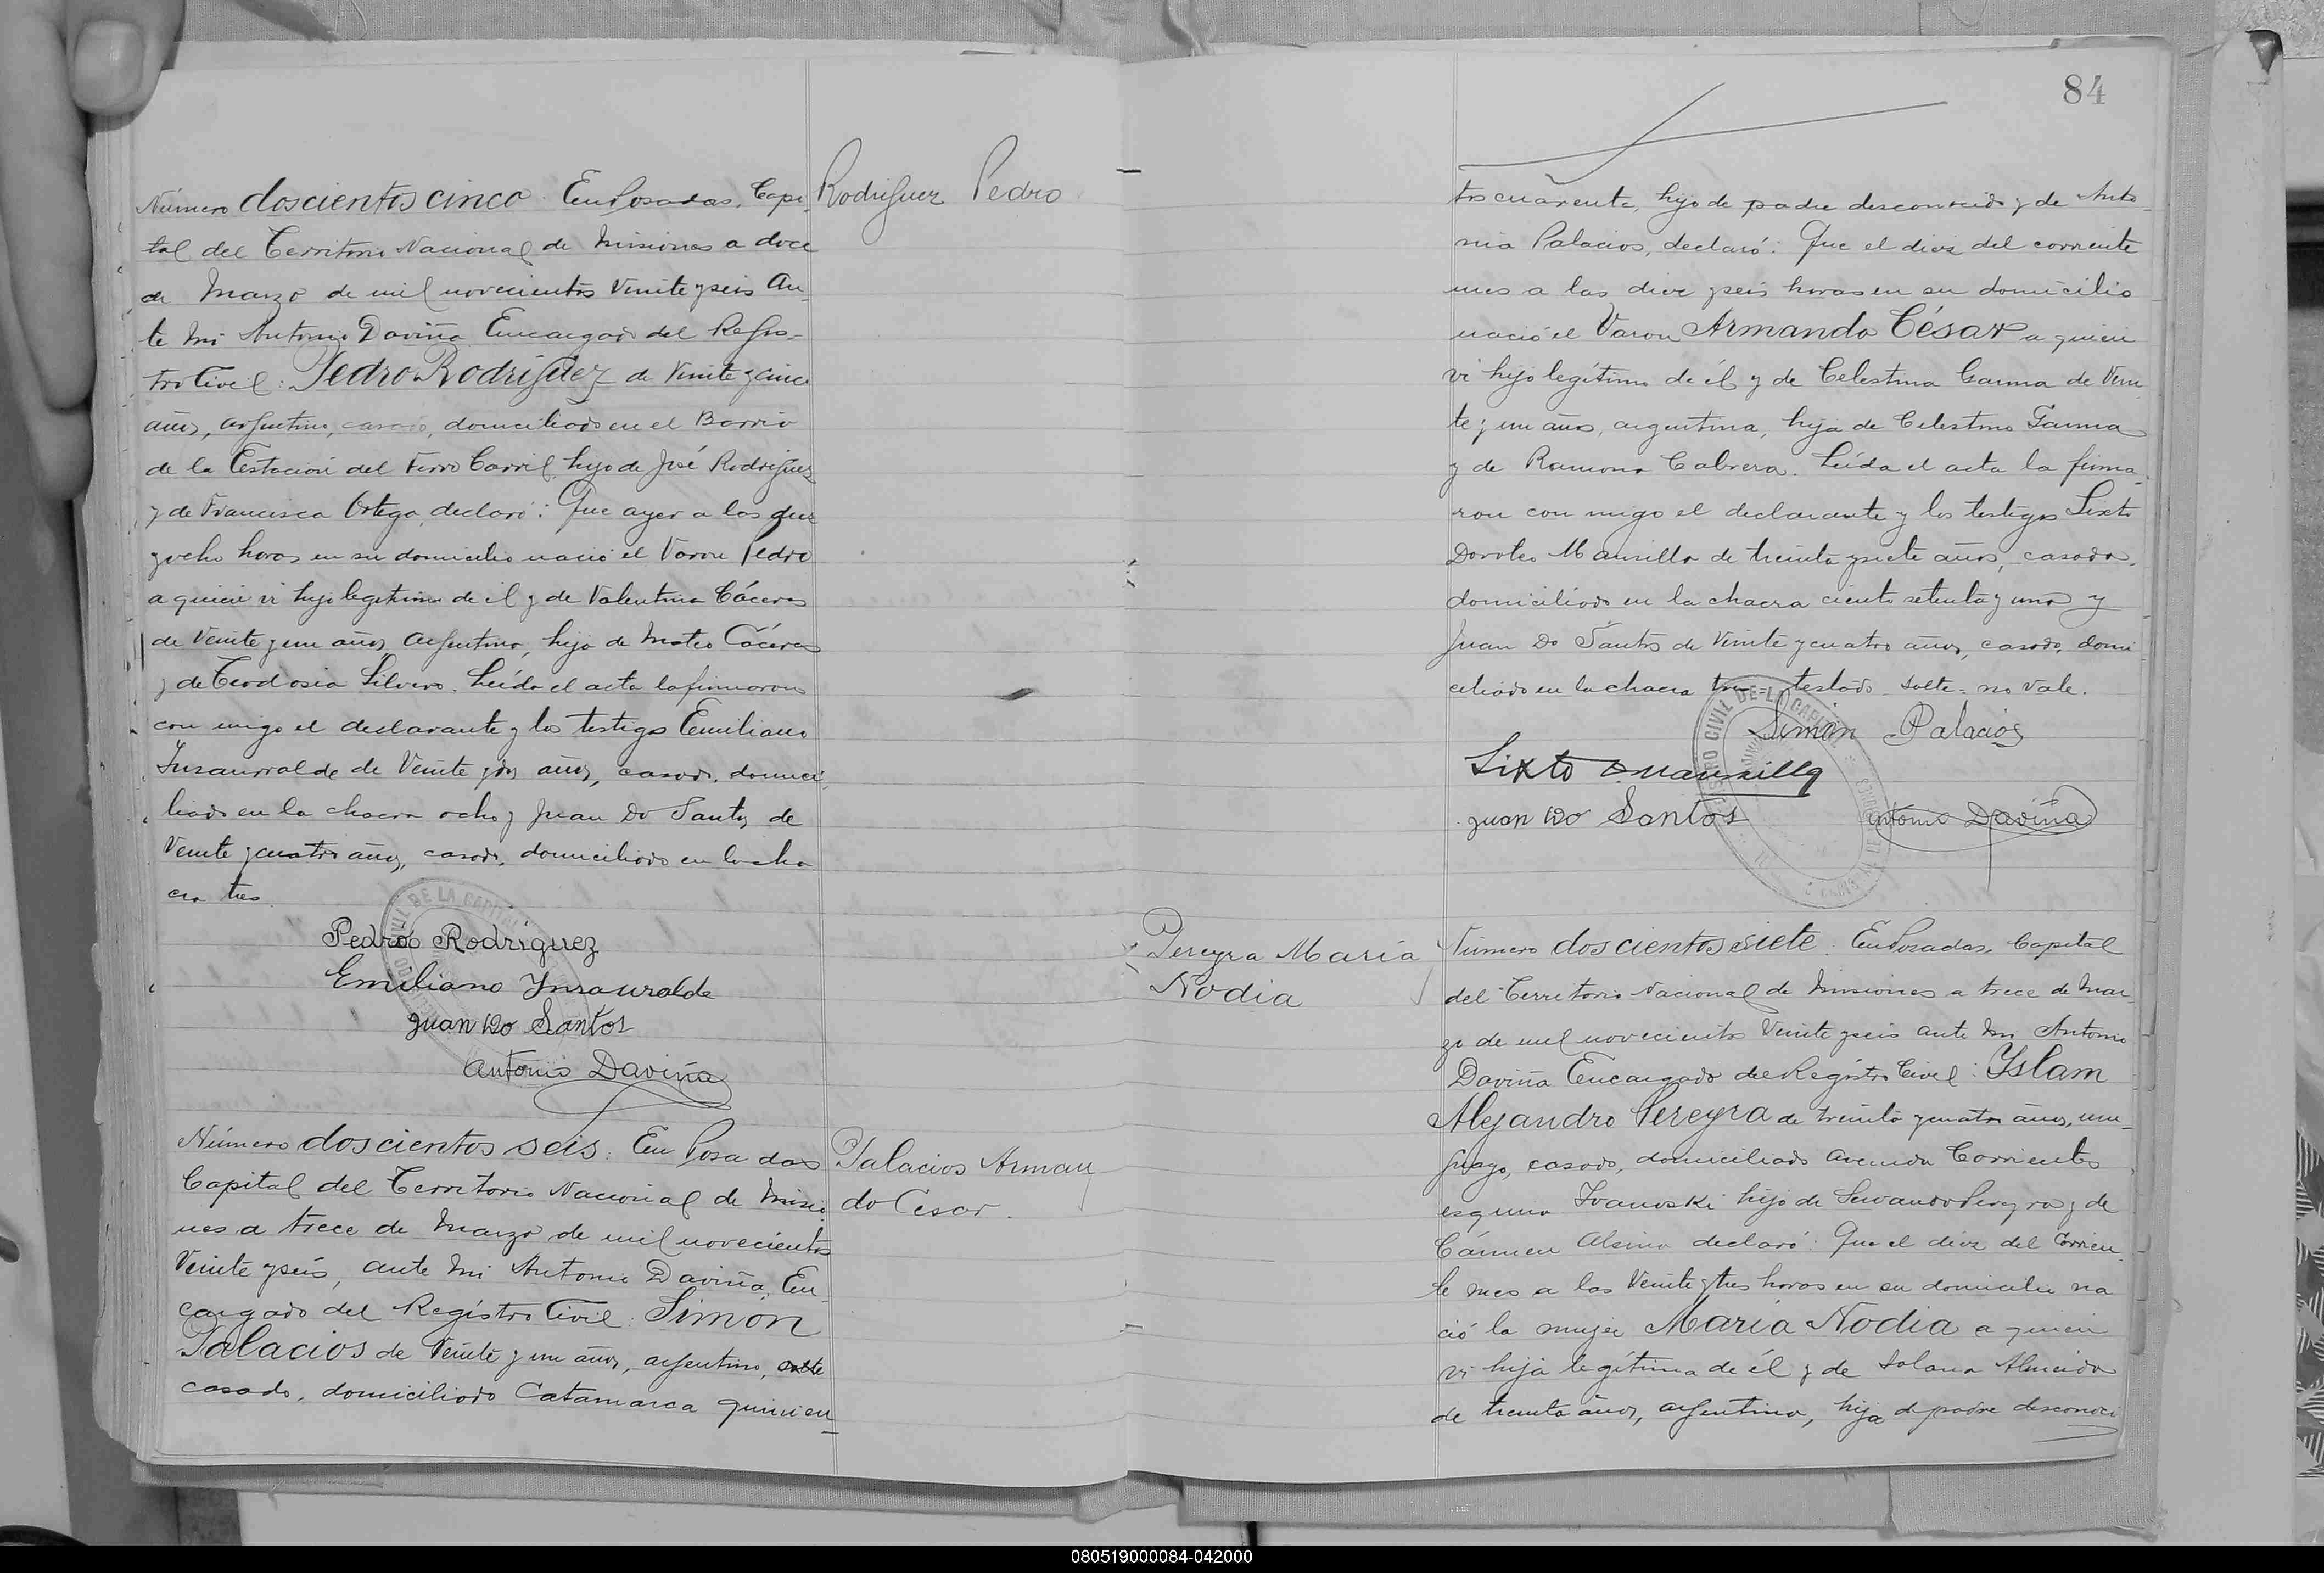 Número doscientos cinco. En Posadas, Capi-
tal del Territorio Nacional de Misiones a doce
de Marzo de mil novecientos veinte y seis An-
te mi Antonio Daviña Encargado del Regis-
tro Civil: Pedro Rodriguez de veinte y cinco
años, argentino, casado, domiciliado en el Barrio
de la Estación del Ferro Carril, hijo de José Rodriguez
y de Francisca Ortega, declaró: Que ayer a las diez
y ocho horas en su domicilio nació el varon Pedro
a quien vi hijo legítimo de él y de Valentina Cáceres
de veinte y un años, argentina, hija de Mateo Cáceres
y de Teodosia Silvero. Leída el acta la firmaron
con migo el declarante y los testigos Emiliano
Insaurralde de veinte y dos años, casado, domici-
liado en la chacra ocho y Juan Do Santos de
veinte y cuatro años, casado, domiciliado en la cha
cra tres.
Pedro Rodriguez
Emiliano Ynsauralde
Juan Do Santos
Antonio Daviña
Rodriguez Pedro
Número doscientos seis. En Posadas
Capital del Territorio Nacional de Misio
nes a trece de Marzo de mil novecientos
veinte y seis, ante mi Antonio Daviña, En-
cargado del Registro Civil: Simon
Palacios de veinte y un años, argentino, solte
casado, domiciliado Catamarca quinien-
Palacios Arman
do Cesar.
84
tos cuarenta, hijo de padre desconocido y de Anto-
nia Palacios, declaró: Que el diez del corriente
mes a las diez y seis horas en su domicilio
nació el varon Armando César a quien
vi hijo legítimo de él y de Celestina Gauna de vein
te y un años, argentina, hija de Celestino Gauna
y de Ramona Cabrera. Leída el acta la firma-
ron con migo el declarante y los testigos Sixto
Doroteo Mansilla de treinta y siete años, casado,
domiciliado en la chacra ciento setenta y uno y
Juan Do Santos de veinte y cuatro años, casado, domi
ciliado en la chacra tres testado - solte - no vale.
Simón Palacios
Sixto D Mansilla
Juan Do Santos
Antonio Daviña
Pereyra María
Nodia
Número doscientos siete. En Posadas, Capital
del Territorio Nacional de Misiones a trece de Mar-
zo de mil novecientos veinte y seis ante mi Antonio
Daviña Encargado del Registro Civil: Yslam
Alejandro Pereyra de treinta y cuatro años, uru-
guayo, casado, domiciliado Avenida Corrientes
esquina Ivanoski hijo de Servando Pereyra y de
Cármen Alsina declaró: Que el diez del corrien
te mes a las veinte y tres horas en su domicilio na
ció la mujer María Nodia a quien
vi hija legítima de él y de Solana Almeida
de treinta años, argentina, hija de padre desconoci
080519000084-042000